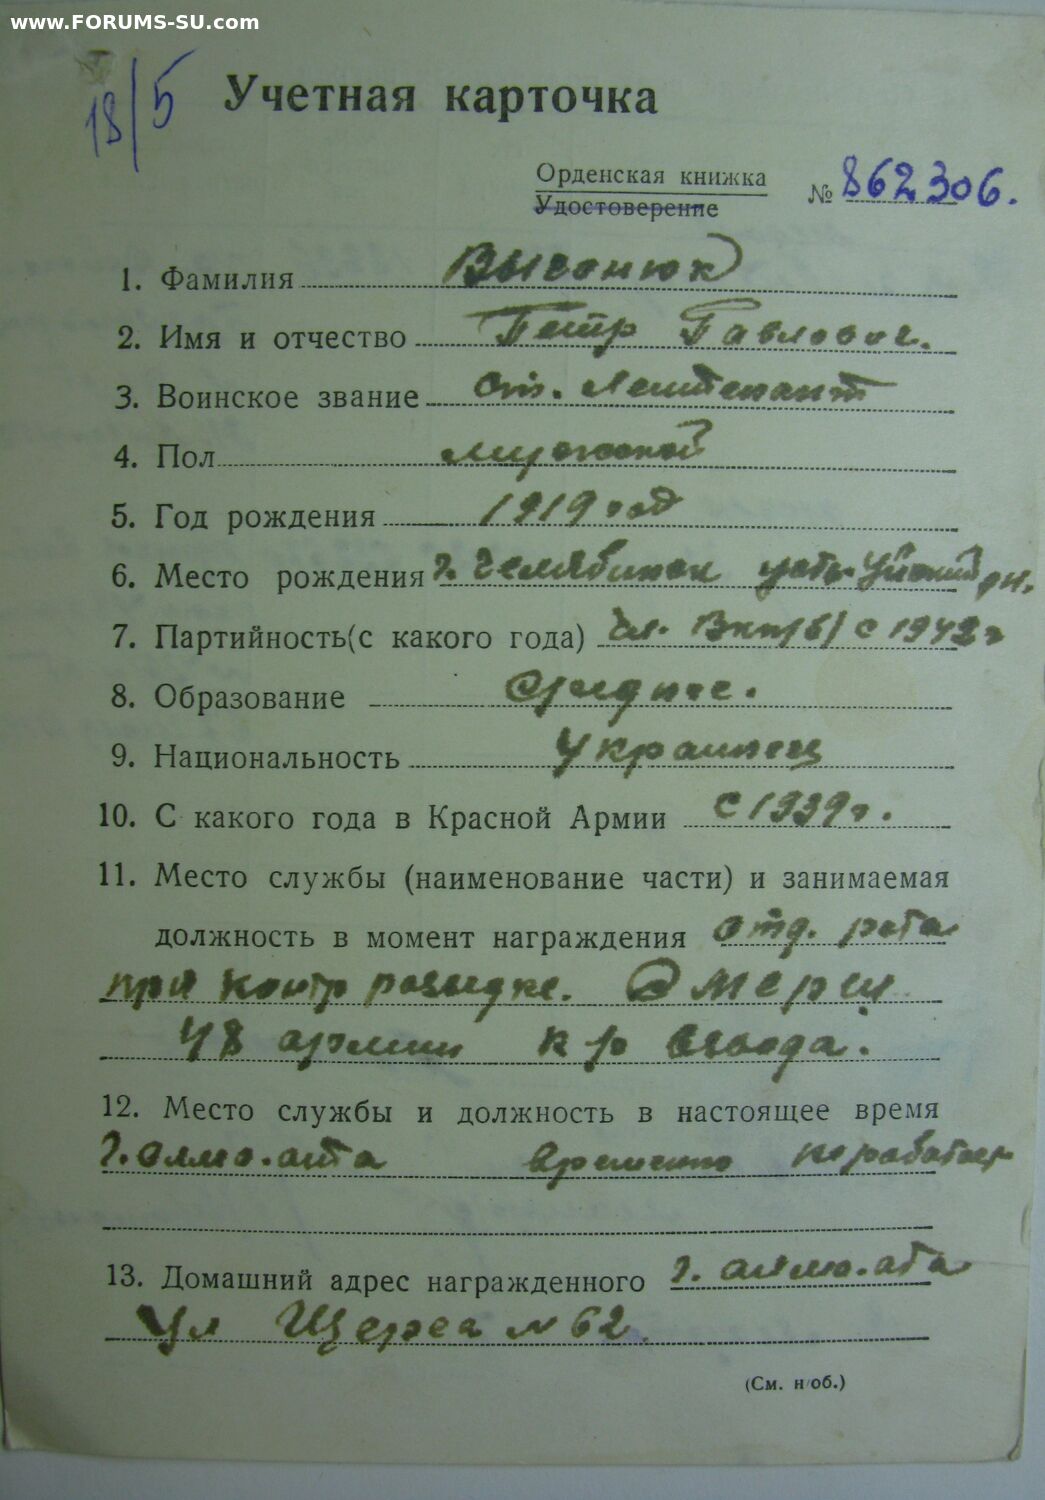 www.FORUMS-SU.com
18/5
Учетная карточка
Орденская книжка
Удостоверение
№ 862306.
1. Фамилия Высонюк
2. Имя и отчество Петр Павлович.
3. Воинское звание Ст. Лейтенант
4. Пол мужской
5. Год рождения 1919 год
6. Место рождения г. Челябинск усть-Уйский рн.
7. Партийность(с какого года) Чл. Вкп/б/ с 1942 г
8. Образование Среднее.
9. Национальность Украинец
10. С какого года в Красной Армии с 1939 г.
11. Место службы (наименование части) и занимаемая
должность в момент награждения отд. рота
при контр разведке. Смерш
48 армии к-р взвода.
12. Место службы и должность в настоящее время
г. Алма-ата Временно не работает
13. Домашний адрес награжденного г. алма-ата
ул № 62.
(См. н/об.)